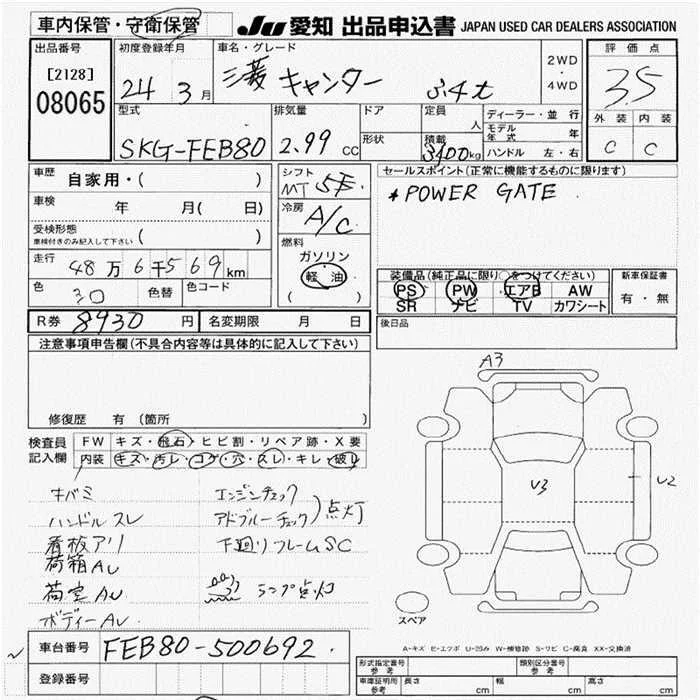 車内保管・守衛保管
JU 愛知 出品申込書 JAPAN USED CAR DEALERS ASSOCIATION
出品番号
[2128]
08065
初度登録年月
24 3月
車名・グレード
三菱 キャンター
2WD
・
4WD
評価点
3.5
外装 内装
C C
型式
SKG-FEB80
排気量
2.99 cc
ドア
形状
定員
人
積載
kg
ディーラー・並行
モデル年式 年
ハンドル 左・右
車歴
自家用・( )
車検
年 月( 日)
受検形態
車検付きのみ記入して下さい ( )
走行
48万6千569km
色
色替
色コード
シフト
MT 5F
冷房
A/C
燃料
ガソリン
軽油
( )
セールスポイント(正常に機能するものに限ります)
*POWER GATE
装備品(純正品に限り○をつけてください)
PS PW エアB AW
SR ナビ TV カワシート
新車保証書
有・無
後日品
R券 8930円
名変期限 月 日
注意事項申告欄(不具合内容等は具体的に記入して下さい)
修復歴 有(箇所 )
検査員記入欄
FW キズ・飛石・ヒビ割・リペア跡・X要
内装 キズ・汚レ・コゲ・穴・スレ・キレ・破レ
キバミ
ハンドルスレ
看板アリ
荷箱AU
荷室AU
ボディーAU
エンジンチェック
アドブルーチェック)点灯
下廻りフレームSC
ランプ点灯
A3
U3
U2
スペア
A-キズ E-エクボ U-凹み W-補修跡 S-サビ C-腐食 XX-交換済
車台番号 FEB80-500692
登録番号
形式指定番号 参考
類別区分番号 参考
車庫証明用 参考
長さ cm
幅 cm
高さ cm